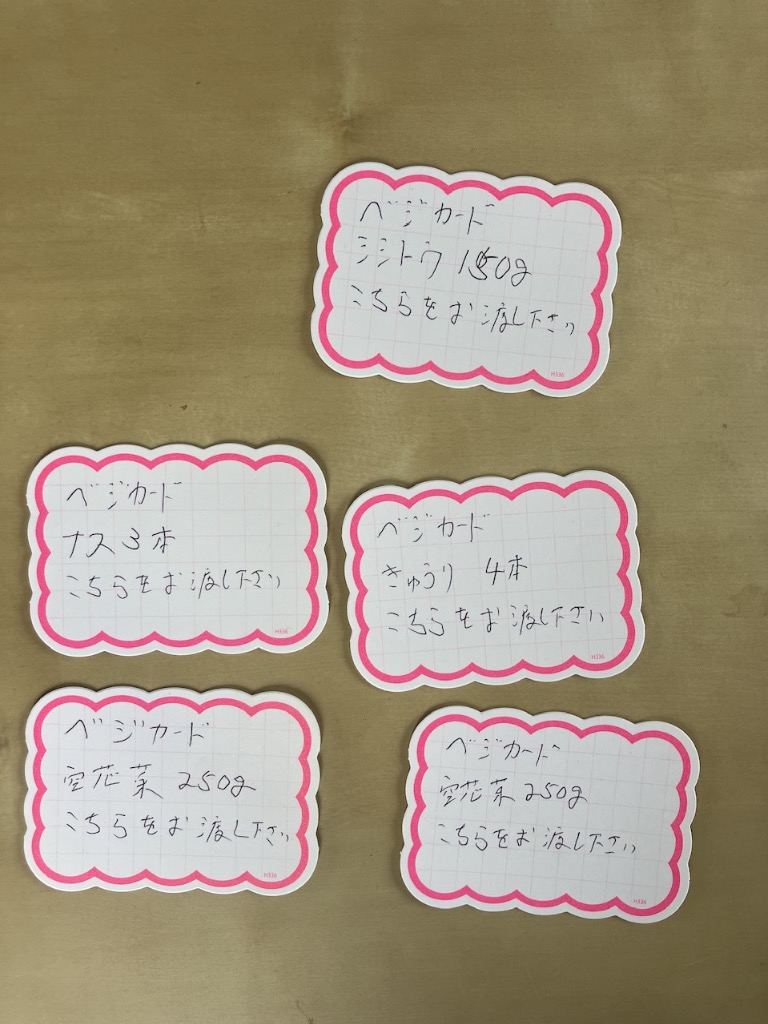 ベジカード
シシトウ 150g
こちらをお渡し下さい
H336
ベジカード
ナス3本
こちらをお渡し下さい
H336
ベジカード
きゅうり 4本
こちらをお渡し下さい
H336
ベジカード
空芯菜 250g
こちらをお渡し下さい
H336
ベジカード
空芯菜 250g
こちらをお渡し下さい
H336